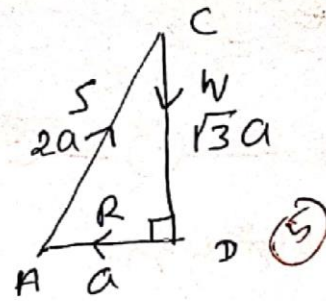 C
S W
2a √3 a
R
A a D 5